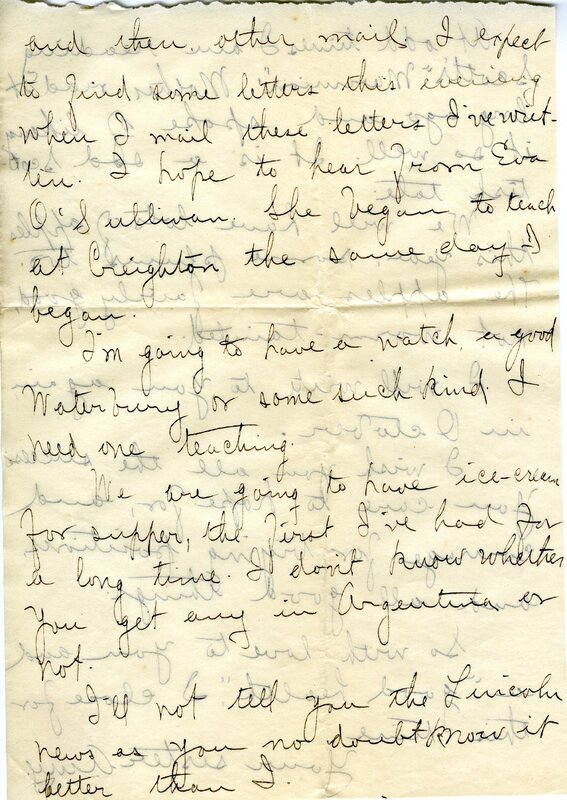 and then, other mail I expect
to find some letters this evening
when I mail these letters I've writ-
ten. I hope to hear from Eva
O'Sullivan. She began to teach
at Creighton the same day I
began.
I'm going to have a watch, a good
Waterbury or some such kind. I
need one teaching.
We are going to have ice-cream
for supper, the first I've had for
a long time. I don't know whether
you get any in Argentina or
not.
I'll not tell you the Lincoln
news as you no doubt know it
better than I.